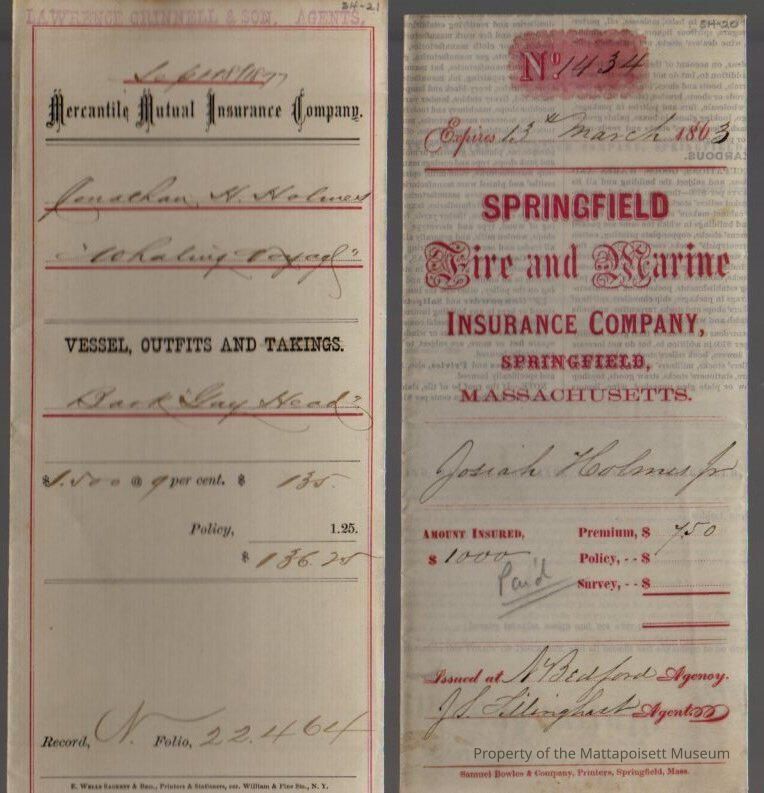 34-21
LAWRENCE GRINNELL & SON, AGENTS.
Mercantile Mutual Insurance Company.
Jonathan H. Holmes
"Whaling Voyage"
VESSEL, OUTFITS AND TAKINGS.
Bark "Gay Head"
$1.500 @ 9 per cent. $ 135.
Policy, 1.25.
$ 136.25
Record, N. Folio, 22.464
E. WELLS SACKETT & BRO., Printers & Stationers, cor. William & Pine Sts., N. Y.
34-20
No. 1434
Expires 13th March 1863
SPRINGFIELD
Fire and Marine
INSURANCE COMPANY,
SPRINGFIELD,
MASSACHUSETTS.
Josiah Holmes Jr
AMOUNT INSURED, Premium, $ 7.50
$ 1000 Policy, - - $
Paid Survey, - - $
Issued at N Bedford Agency.
J.S. Tillinghast Agent.
Property of the Mattapoisett Museum
Samuel Bowles & Company, Printers, Springfield, Mass.